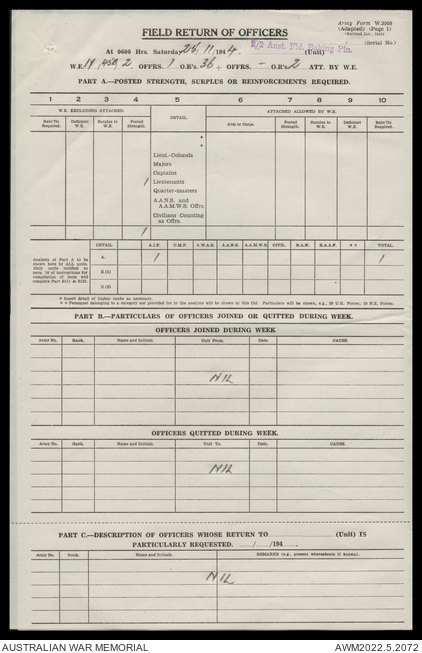 Army Form W 3008
(Adapted) (Page 1)
(Serial No.)
FIELD RETURN OF OFFICERS
At 0600 Hrs. Saturday 25/11/1944. 2/2 Aust. Fld. Baking Pln. (Unit)
W.E. OFFRS. 1 O.R's. 36 + OFFRS. - O.R's. 2 ATT. BY W.E.
PART A.—POSTED STRENGTH, SURPLUS OR REINFORCEMENTS REQUIRED.
1 2 3 4 5 6 7 8 9 10
W.E. EXCLUDING ATTACHED. DETAIL ATTACHED ALLOWED BY W.E.
Reinf'tts Required. Deficient W.E. Surplus to W.E. Posted Strength. Arm or Corps. Posted Strength. Surplus to W.E. Deficient W.E. Reinf'tts Required.
*
*
Lieut.-Colonels
Majors
Captains
1 Lieutenants
Quarter-masters
A.A.N.S. and
A.A.M.W.S. Offrs.
Civilians Counting
as Offrs.
1
DETAIL A.I.F. C.M.F. A.W.A.S. A.A.N.S. A.A.M.W.S. CIVIL. R.A.N. R.A.A.F. * * TOTAL.
Analysis of Part A to be
shown here by ALL units.
Only units notified in
para. 10 of instructions for
compilation of form will
complete Part X(1) & X(2).
A. 1 1
X (1)
X (2)
* Insert detail of higher ranks as necessary.
* * Personnel belonging to a category not provided for in the analysis will be shown in this Col. Particulars will be shown, e.g., 20 U.K. Forces; 10 N.Z. Forces.
PART B.—PARTICULARS OF OFFICERS JOINED OR QUITTED DURING WEEK.
OFFICERS JOINED DURING WEEK
Army No. Rank. Name and Initials. Unit From. Date. CAUSE.
NIL
OFFICERS QUITTED DURING WEEK.
Army No. Rank. Name and Initials. Unit To. Date. CAUSE.
NIL
PART C.—DESCRIPTION OF OFFICERS WHOSE RETURN TO (Unit) IS
PARTICULARLY REQUESTED. / /194 .
Army No. Rank. Name and Initials. REMARKS (e.g., present whereabouts if known).
NIL
AUSTRALIAN WAR MEMORIAL AWM2022.5.2072